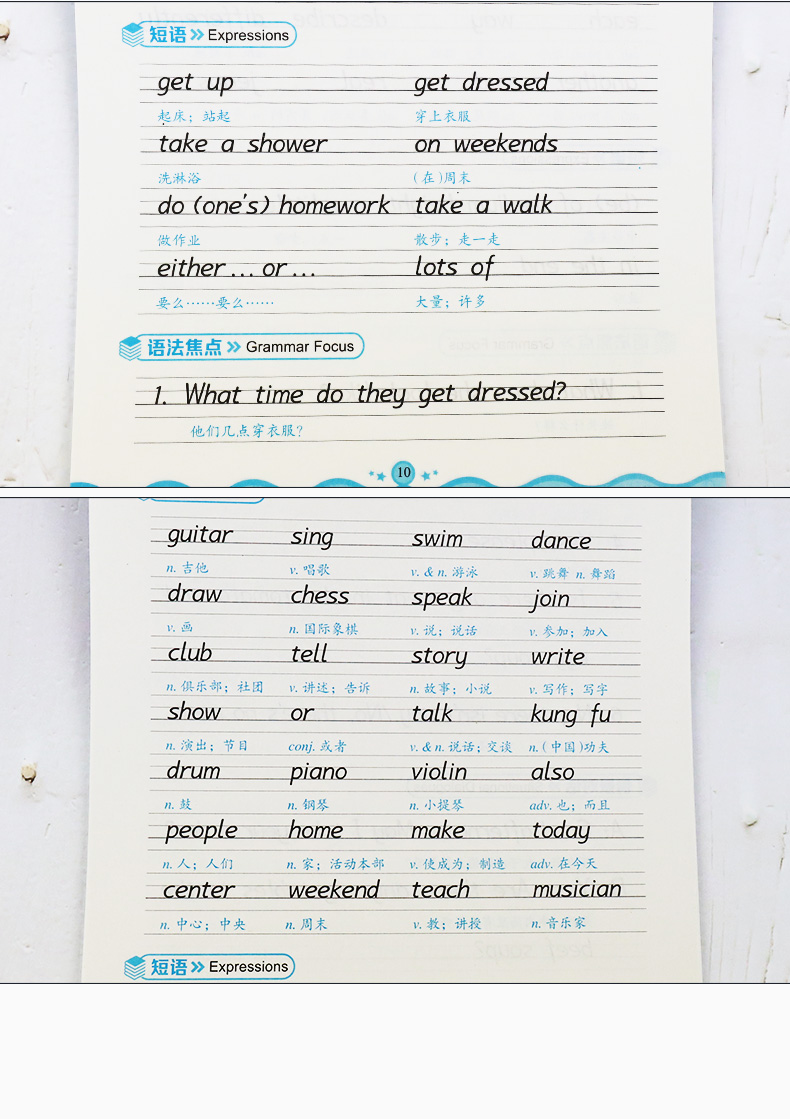 短语 Expressions
get up get dressed
起床；站起 穿上衣服
take a shower on weekends
洗淋浴 (在)周末
do (one's) homework take a walk
做作业 散步；走一走
either ... or ... lots of
要么……要么…… 大量；许多
语法焦点 Grammar Focus
1. What time do they get dressed?
他们几点穿衣服？
10
guitar sing swim dance
n. 吉他 v. 唱歌 v. & n. 游泳 v. 跳舞 n. 舞蹈
draw chess speak join
v. 画 n. 国际象棋 v. 说；说话 v. 参加；加入
club tell story write
n. 俱乐部；社团 v. 讲述；告诉 n. 故事；小说 v. 写作；写字
show or talk kung fu
n. 演出；节目 conj. 或者 v. & n. 说话；交谈 n. (中国)功夫
drum piano violin also
n. 鼓 n. 钢琴 n. 小提琴 adv. 也；而且
people home make today
n. 人；人们 n. 家；活动本部 v. 使成为；制造 adv. 在今天
center weekend teach musician
n. 中心；中央 n. 周末 v. 教；讲授 n. 音乐家
短语 Expressions